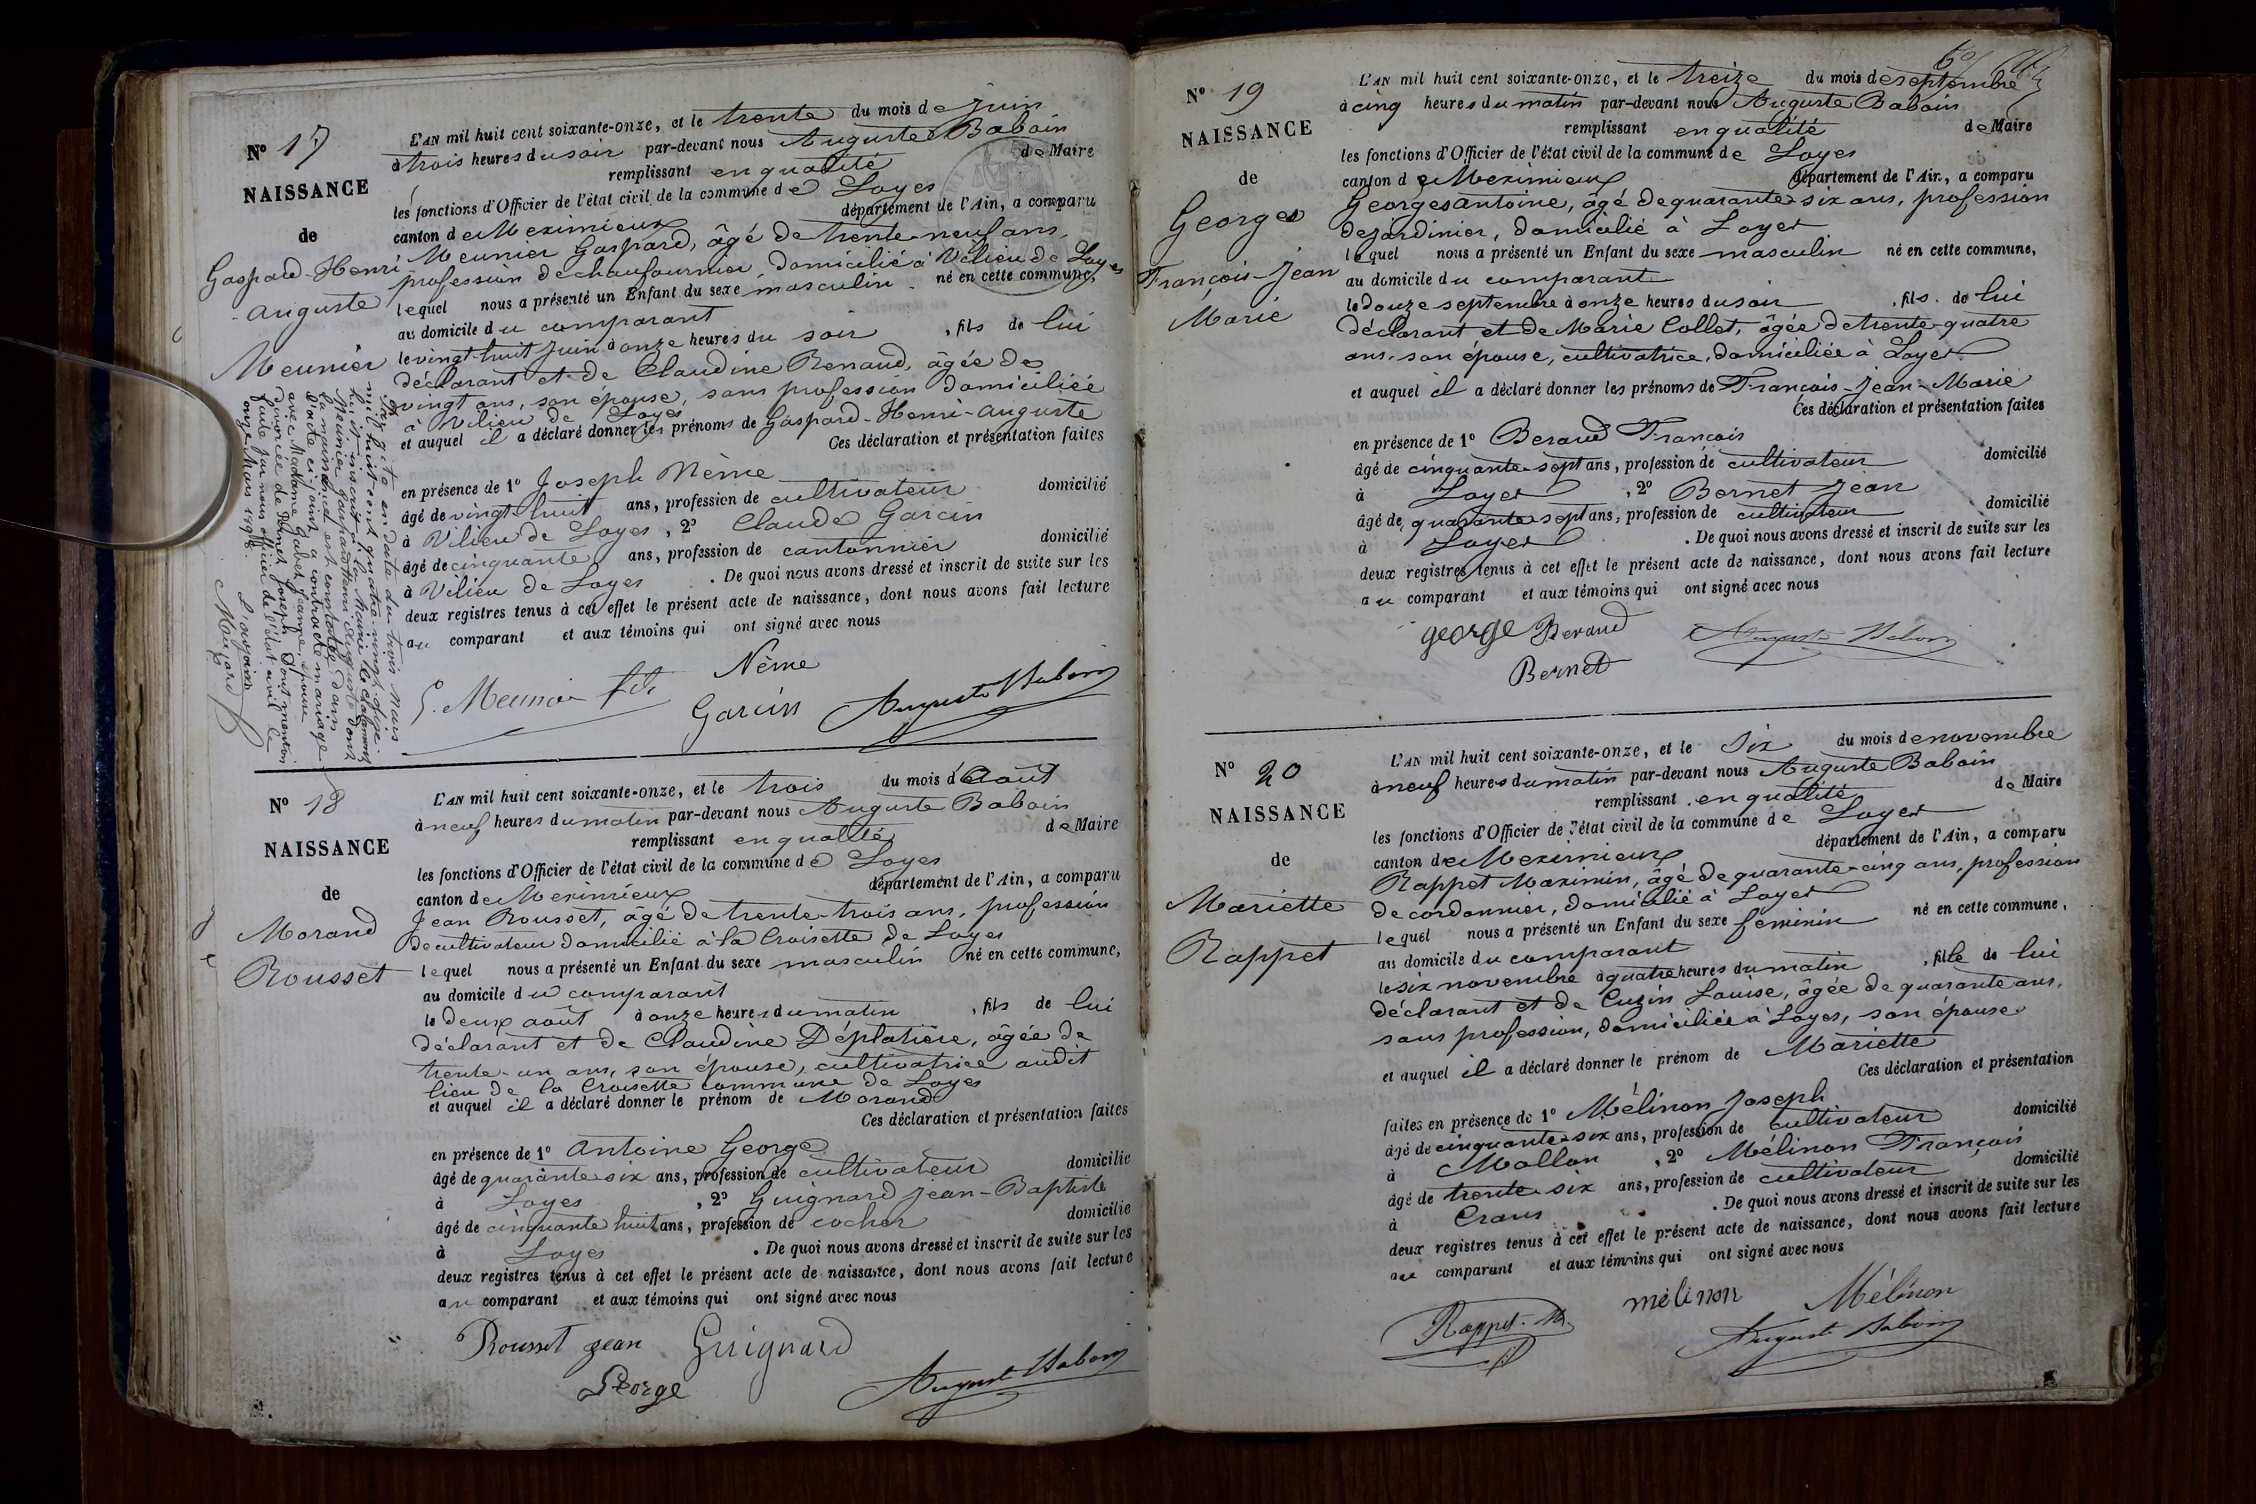 Nº 17
NAISSANCE
de
Gaspard-Henri
auguste
Meunier
L'AN mil huit cent soixante-onze, et le trente du mois de Juin
à trois heures du soir par-devant nous Auguste Baboin
remplissant en qualité de Maire
les fonctions d'Officier de l'état civil de la commune de Loyes
canton de Meximieux département de l'Ain, a comparu
Meunier Gaspard, âgé de trente-neuf ans
profession de chaufournier, domicilié à Vilieu de Loyes
lequel nous a présenté un Enfant du sexe masculin né en cette commune,
au domicile du comparant
le vingt-huit Juin à onze heures du soir , fils de lui
déclarant et de Claudine Renaud, âgée de
vingt ans, son épouse, sans profession domiciliée
à Vilieu de Loyes
et auquel il a déclaré donner les prénoms de Gaspard-Henri-auguste
Ces déclaration et présentation faites
en présence de 1º Joseph Nême
âgé de vingt huit ans, profession de cultivateur domicilié
à Vilieu de Loyes , 2º Claude Garcin
âgé de cinquante ans, profession de cantonnier domicilié
à Vilieu de Loyes . De quoi nous avons dressé et inscrit de suite sur les
deux registres tenus à cet effet le présent acte de naissance, dont nous avons fait lecture
au comparant et aux témoins qui ont signé avec nous
G. Meunier fils Nême
Garcin Auguste Baboin
en date du trois Mars
mil huit cent quatre-vingt-dix
inscrit à la Mairie
Meunier Gaspard Henri Auguste dont
la naissance est constatée dans
l'acte ci-joint, a contracté mariage
avec Madame Gubet Jeanne, épouse
divorcée de Joseph, dont mention
faite par nous officier de l'état civil le
onze Mars
Nº 18
NAISSANCE
de
Morand
Rousset
L'AN mil huit cent soixante-onze, et le trois du mois d'Août
à neuf heures du matin par-devant nous Auguste Baboin
remplissant en qualité de Maire
les fonctions d'Officier de l'état civil de la commune de Loyes
canton de Meximieux département de l'Ain, a comparu
Jean Rousset, âgé de trente-trois ans, profession
de cultivateur domicilié à la Croisette de Loyes
lequel nous a présenté un Enfant du sexe masculin né en cette commune,
au domicile du comparant
le deux août à onze heures du matin , fils de lui
déclarant et de Claudine Déplatière, âgée de
trente-un ans, son épouse, cultivatrice audit
lieu de la Croisette commune de Loyes
et auquel il a déclaré donner le prénom de Morand
Ces déclaration et présentation faites
en présence de 1º Antoine George
âgé de quarante six ans, profession de cultivateur domicilié
à Loyes , 2º Guignard Jean-Baptiste
âgé de cinquante huit ans, profession de cocher domicilié
à Loyes . De quoi nous avons dressé et inscrit de suite sur les
deux registres tenus à cet effet le présent acte de naissance, dont nous avons fait lecture
au comparant et aux témoins qui ont signé avec nous
Rousset Jean Guignard
George Auguste Baboin
Nº 19
NAISSANCE
de
Georges
François-Jean
Marie
L'AN mil huit cent soixante-onze, et le treize du mois de septembre
à cinq heures du matin par-devant nous Auguste Baboin
remplissant en qualité de Maire
les fonctions d'Officier de l'état civil de la commune de Loyes
canton de Meximieux département de l'Ain, a comparu
Georges Antoine, âgé de quarante six ans, profession
de jardinier, domicilié à Loyes
lequel nous a présenté un Enfant du sexe masculin né en cette commune,
au domicile du comparant
le douze septembre à onze heures du soir , fils de lui
déclarant et de Marie Collet, âgée de trente-quatre
ans, son épouse, cultivatrice, domiciliée à Loyes
et auquel il a déclaré donner les prénoms de François-Jean-Marie
Ces déclaration et présentation faites
en présence de 1º Beraud François
âgé de cinquante sept ans, profession de cultivateur domicilié
à Loyes , 2º Bernet Jean
âgé de quarante sept ans, profession de cultivateur domicilié
à Loyes . De quoi nous avons dressé et inscrit de suite sur les
deux registres tenus à cet effet le présent acte de naissance, dont nous avons fait lecture
au comparant et aux témoins qui ont signé avec nous
george Beraud Auguste Baboin
Bernet
Nº 20
NAISSANCE
de
Mariette
Rappet
L'AN mil huit cent soixante-onze, et le Six du mois de novembre
à neuf heures du matin par-devant nous Auguste Baboin
remplissant en qualité de Maire
les fonctions d'Officier de l'état civil de la commune de Loyes
canton de Meximieux département de l'Ain, a comparu
Rappet Maximin, âgé de quarante-cinq ans, profession
de cordonnier, domicilié à Loyes
lequel nous a présenté un Enfant du sexe féminin né en cette commune,
au domicile du comparant
le six novembre à quatre heures du matin , fille de lui
déclarant et de Cuzin Louise, âgée de quarante ans,
sans profession, domiciliée à Loyes, son épouse
et auquel il a déclaré donner le prénom de Mariette
Ces déclaration et présentation
faites en présence de 1º Mélinon Joseph
âgé de cinquante six ans, profession de cultivateur domicilié
à Mollon , 2º Mélinon François
âgé de trente six ans, profession de cultivateur domicilié
à Crans . De quoi nous avons dressé et inscrit de suite sur les
deux registres tenus à cet effet le présent acte de naissance, dont nous avons fait lecture
au comparant et aux témoins qui ont signé avec nous
Rappet. M. mélinon Mélinon
Auguste Baboin